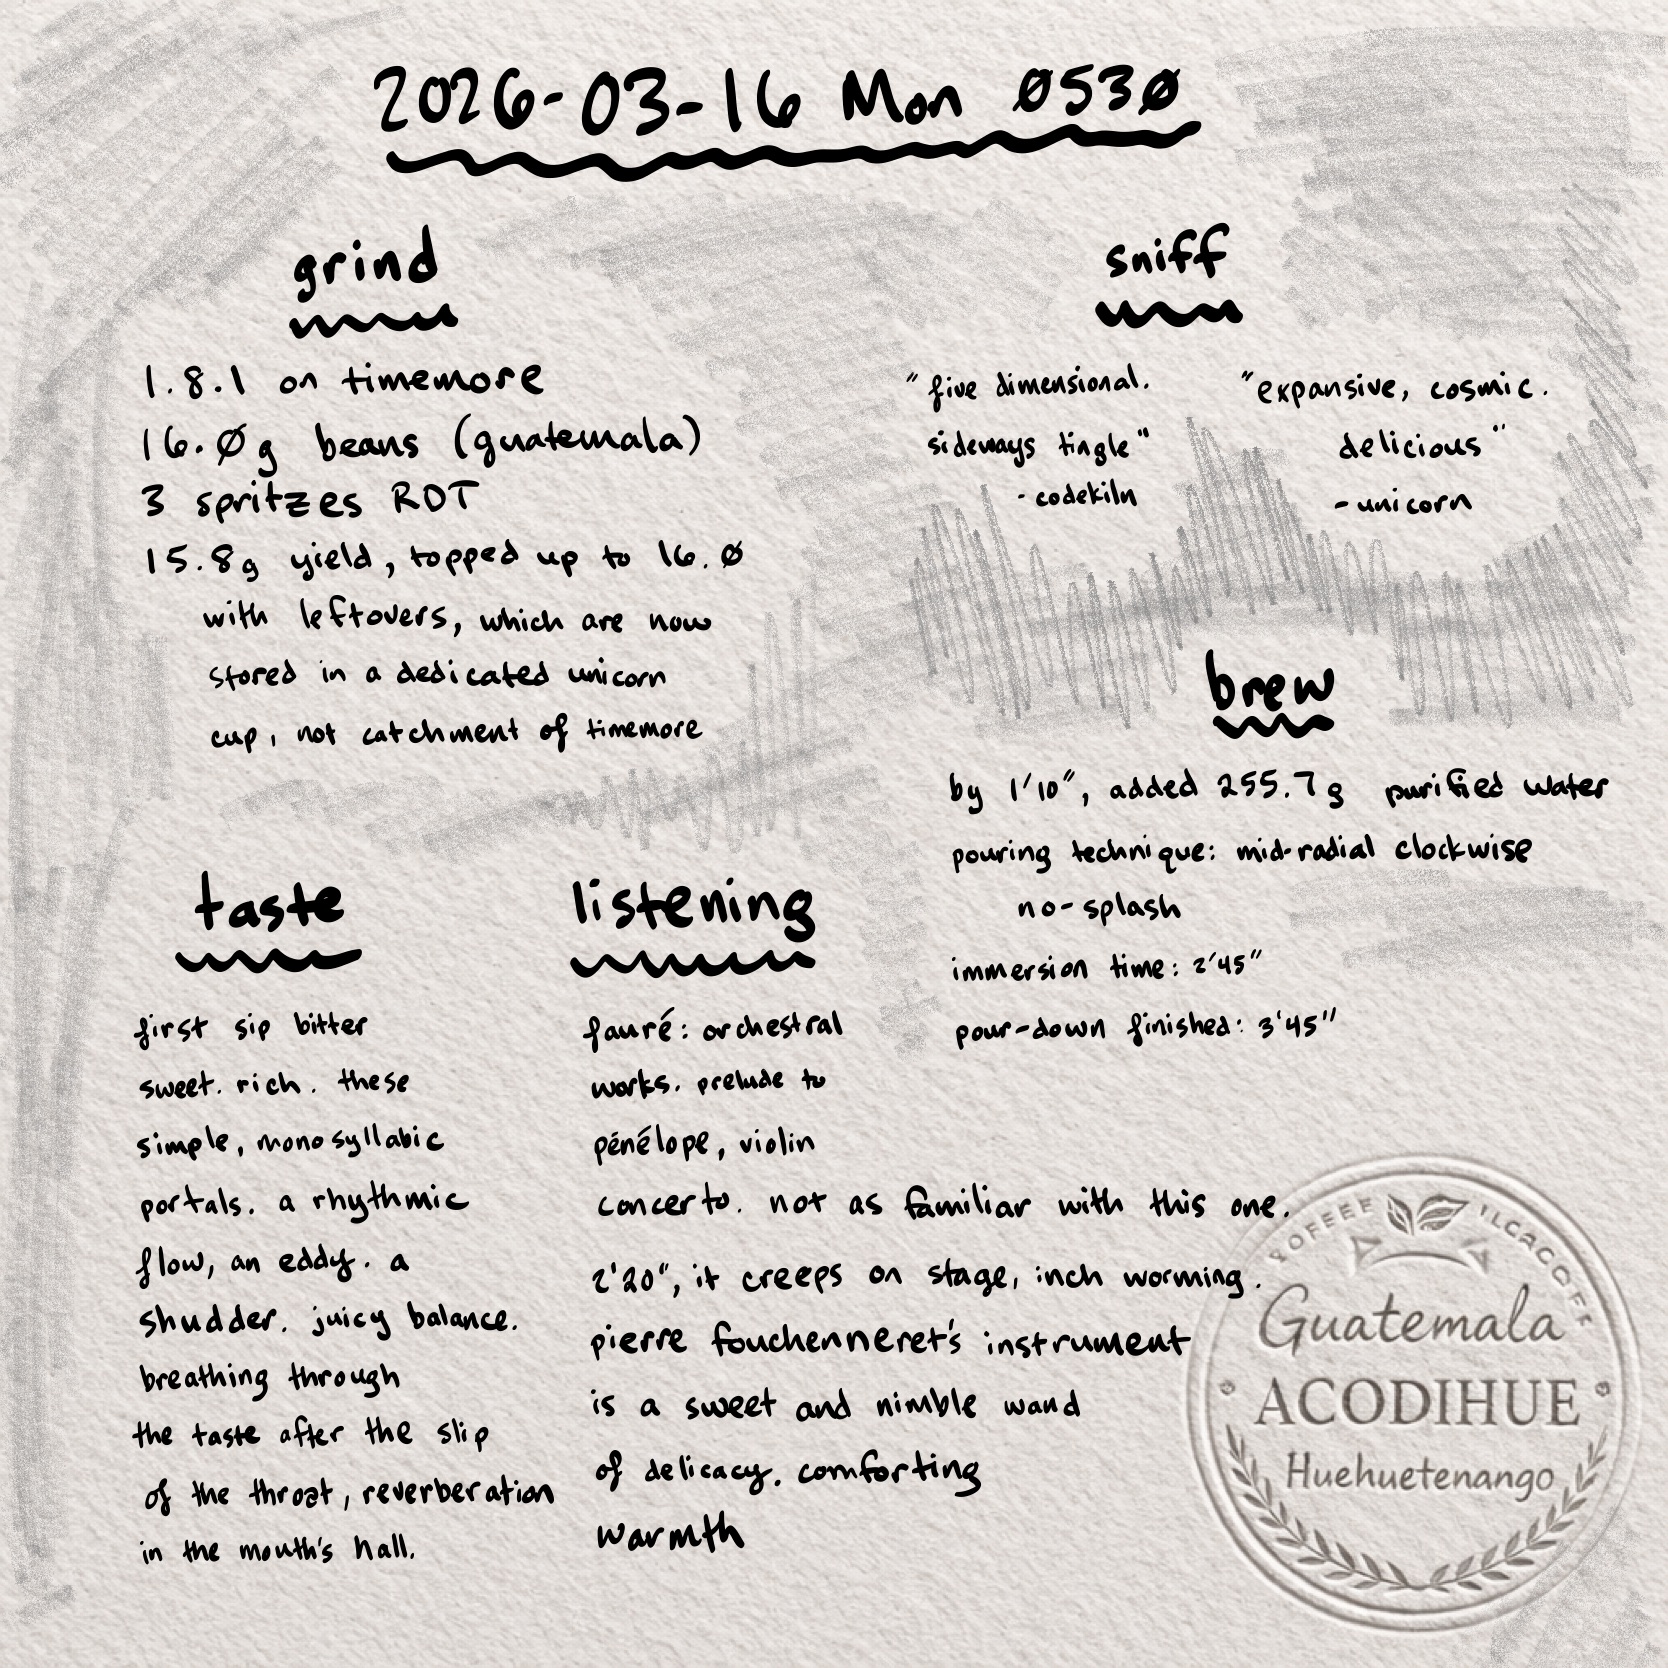 2026-03-16 Mon 0530
grind
1.8.1 on timemore
16.0g beans (guatemala)
3 spritzes RDT
15.8g yield, topped up to 16.0
with leftovers, which are now
stored in a dedicated unicorn
cup, not catchment of timemore
sniff
"five dimensional.
sideways tingle"
- codekiln
"expansive, cosmic.
delicious"
- unicorn
brew
by 1'10", added 255.7g purified water
pouring technique: mid-radial clockwise
no-splash
immersion time: 2'45"
pour-down finished: 3'45"
taste
first sip bitter
sweet. rich. these
simple, monosyllabic
portals. a rhythmic
flow, an eddy. a
shudder. juicy balance.
breathing through
the taste after the slip
of the throat, reverberation
in the mouth's hall.
listening
fauré: orchestral
works. prelude to
pénélope, violin
concerto. not as familiar with this one.
2'20", it creeps on stage, inch worming.
pierre fouchenneret's instrument
is a sweet and nimble wand
of delicacy. comforting
warmth
Guatemala
ACODIHUE
Huehuetenango